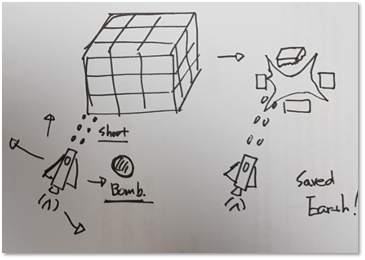 Shoot
Bomb.
Saved
Earth!